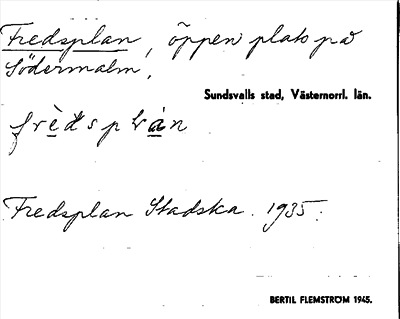 Fredsplan, öppen plats på
Södermalm.
Sundsvalls stad, Västernorrl. län.
Fredsplan Stadska. 1935.
BERTIL FLEMSTRÖM 1945.